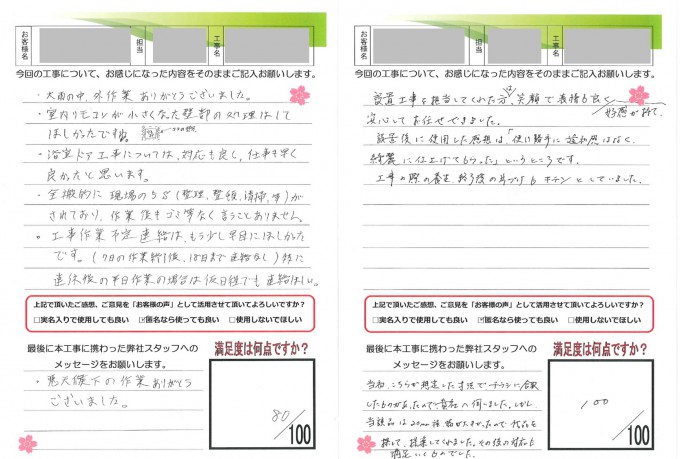 お客様名
担当
工事名
今回の工事について、お感じになった内容をそのままご記入お願いします。
・大雨の中、外作業ありがとうございました。
・室内リモコンが小さくなった壁部の処理はして
ほしかったです。
・浴室ドア工事については、対応も良く、仕事も早く
良かたと思います。
・全般的に現場の5S(整理、整頓、清掃、等)が
されており、作業後もゴミ等なく言うことありません。
・工事作業予定連絡は、もう少し早目にほしかった
です。(7日の作業終了後、18日まで連絡なし)特に
連休後の平日作業の場合は休日でも連絡ほしい。
上記で頂いたご感想、ご意見を「お客様の声」として活用させて頂いてよろしいですか?
□実名入りで使用しても良い ☑匿名なら使っても良い □使用しないでほしい
最後に本工事に携わった弊社スタッフへの
メッセージをお願いします。
・悪天候下の作業ありがとう
ございました。
満足度は何点ですか?
80
/100
お客様名
担当
工事名
今回の工事について、お感じになった内容をそのままご記入お願いします。
設置工事を担当してくれた方は、笑顔で表情も良く
好感が持て、
安心してお任せできました。
設置後に使用した感想は「使い勝手に違和感はなく、
綺麗に仕上げてもらった」というところです。
工事の際の養生、終了後の片づけもキチンとしていました。
上記で頂いたご感想、ご意見を「お客様の声」として活用させて頂いてよろしいですか?
□実名入りで使用しても良い ☑匿名なら使っても良い □使用しないでほしい
最後に本工事に携わった弊社スタッフへの
メッセージをお願いします。
当初、こちらが想定した寸法でチラシに合致
したものがあったので貴社へ伺いました。しかし、
当該品は20mm程、幅が大きかったので代品を
探して、提案してくれました。その後の対応も
満足いくものでした。
満足度は何点ですか?
100
/100